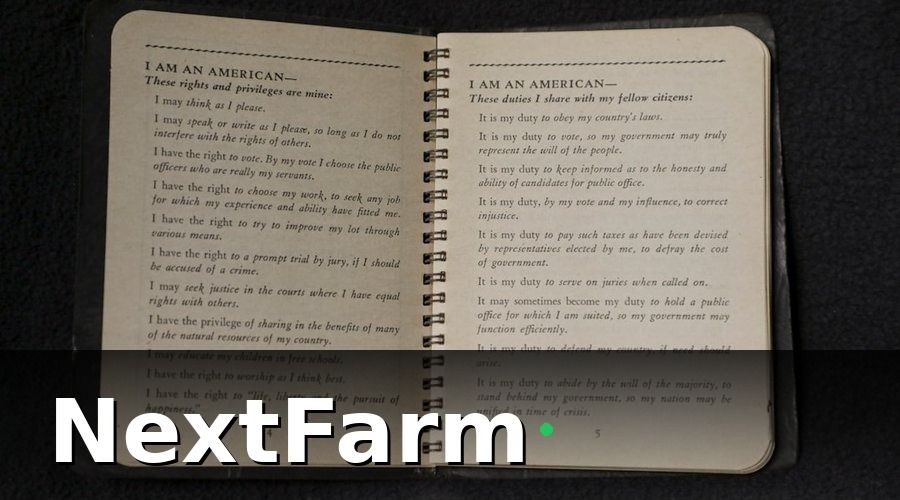 I AM AN AMERICAN—
These rights and privileges are mine:
I may think as I please.
I may speak or write as I please, so long as I do not
interfere with the rights of others.
I have the right to vote. By my vote I choose the public
officers who are really my servants.
I have the right to choose my work, to seek any job
for which my experience and ability have fitted me.
I have the right to try to improve my lot through
various means.
I have the right to a prompt trial by jury, if I should
be accused of a crime.
I may seek justice in the courts where I have equal
rights with others.
I have the privilege of sharing in the benefits of many
of the natural resources of my country.
I may educate my children in free schools.
I have the right to worship as I think best.
I have the right to "life, liberty and the pursuit of
happiness."
4
I AM AN AMERICAN—
These duties I share with my fellow citizens:
It is my duty to obey my country's laws.
It is my duty to vote, so my government may truly
represent the will of the people.
It is my duty to keep informed as to the honesty and
ability of candidates for public office.
It is my duty, by my vote and my influence, to correct
injustice.
It is my duty to pay such taxes as have been devised
by representatives elected by me, to defray the cost
of government.
It is my duty to serve on juries when called on.
It may sometimes become my duty to hold a public
office for which I am suited, so my government may
function efficiently.
It is my duty to defend my country, if need should
arise.
It is my duty to abide by the will of the majority, to
stand behind my government, so my nation may be
unified in time of crisis.
5
NextFarm